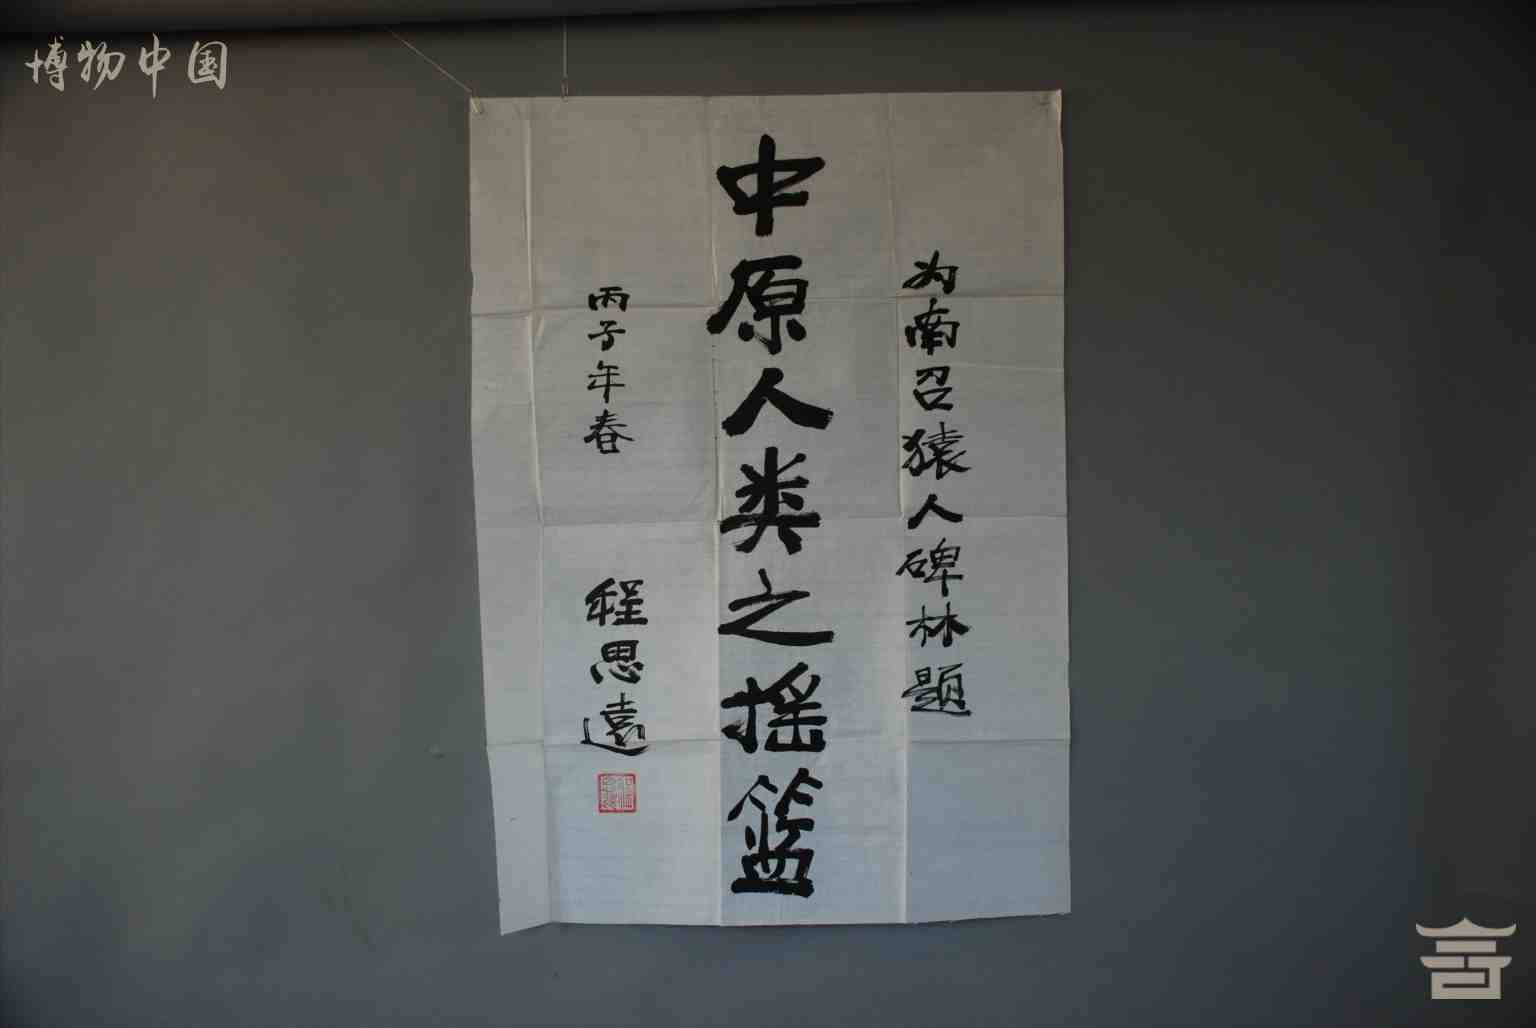 博物中国
为南召猿人碑林题
中原人类之摇篮
丙子年春
程思遠